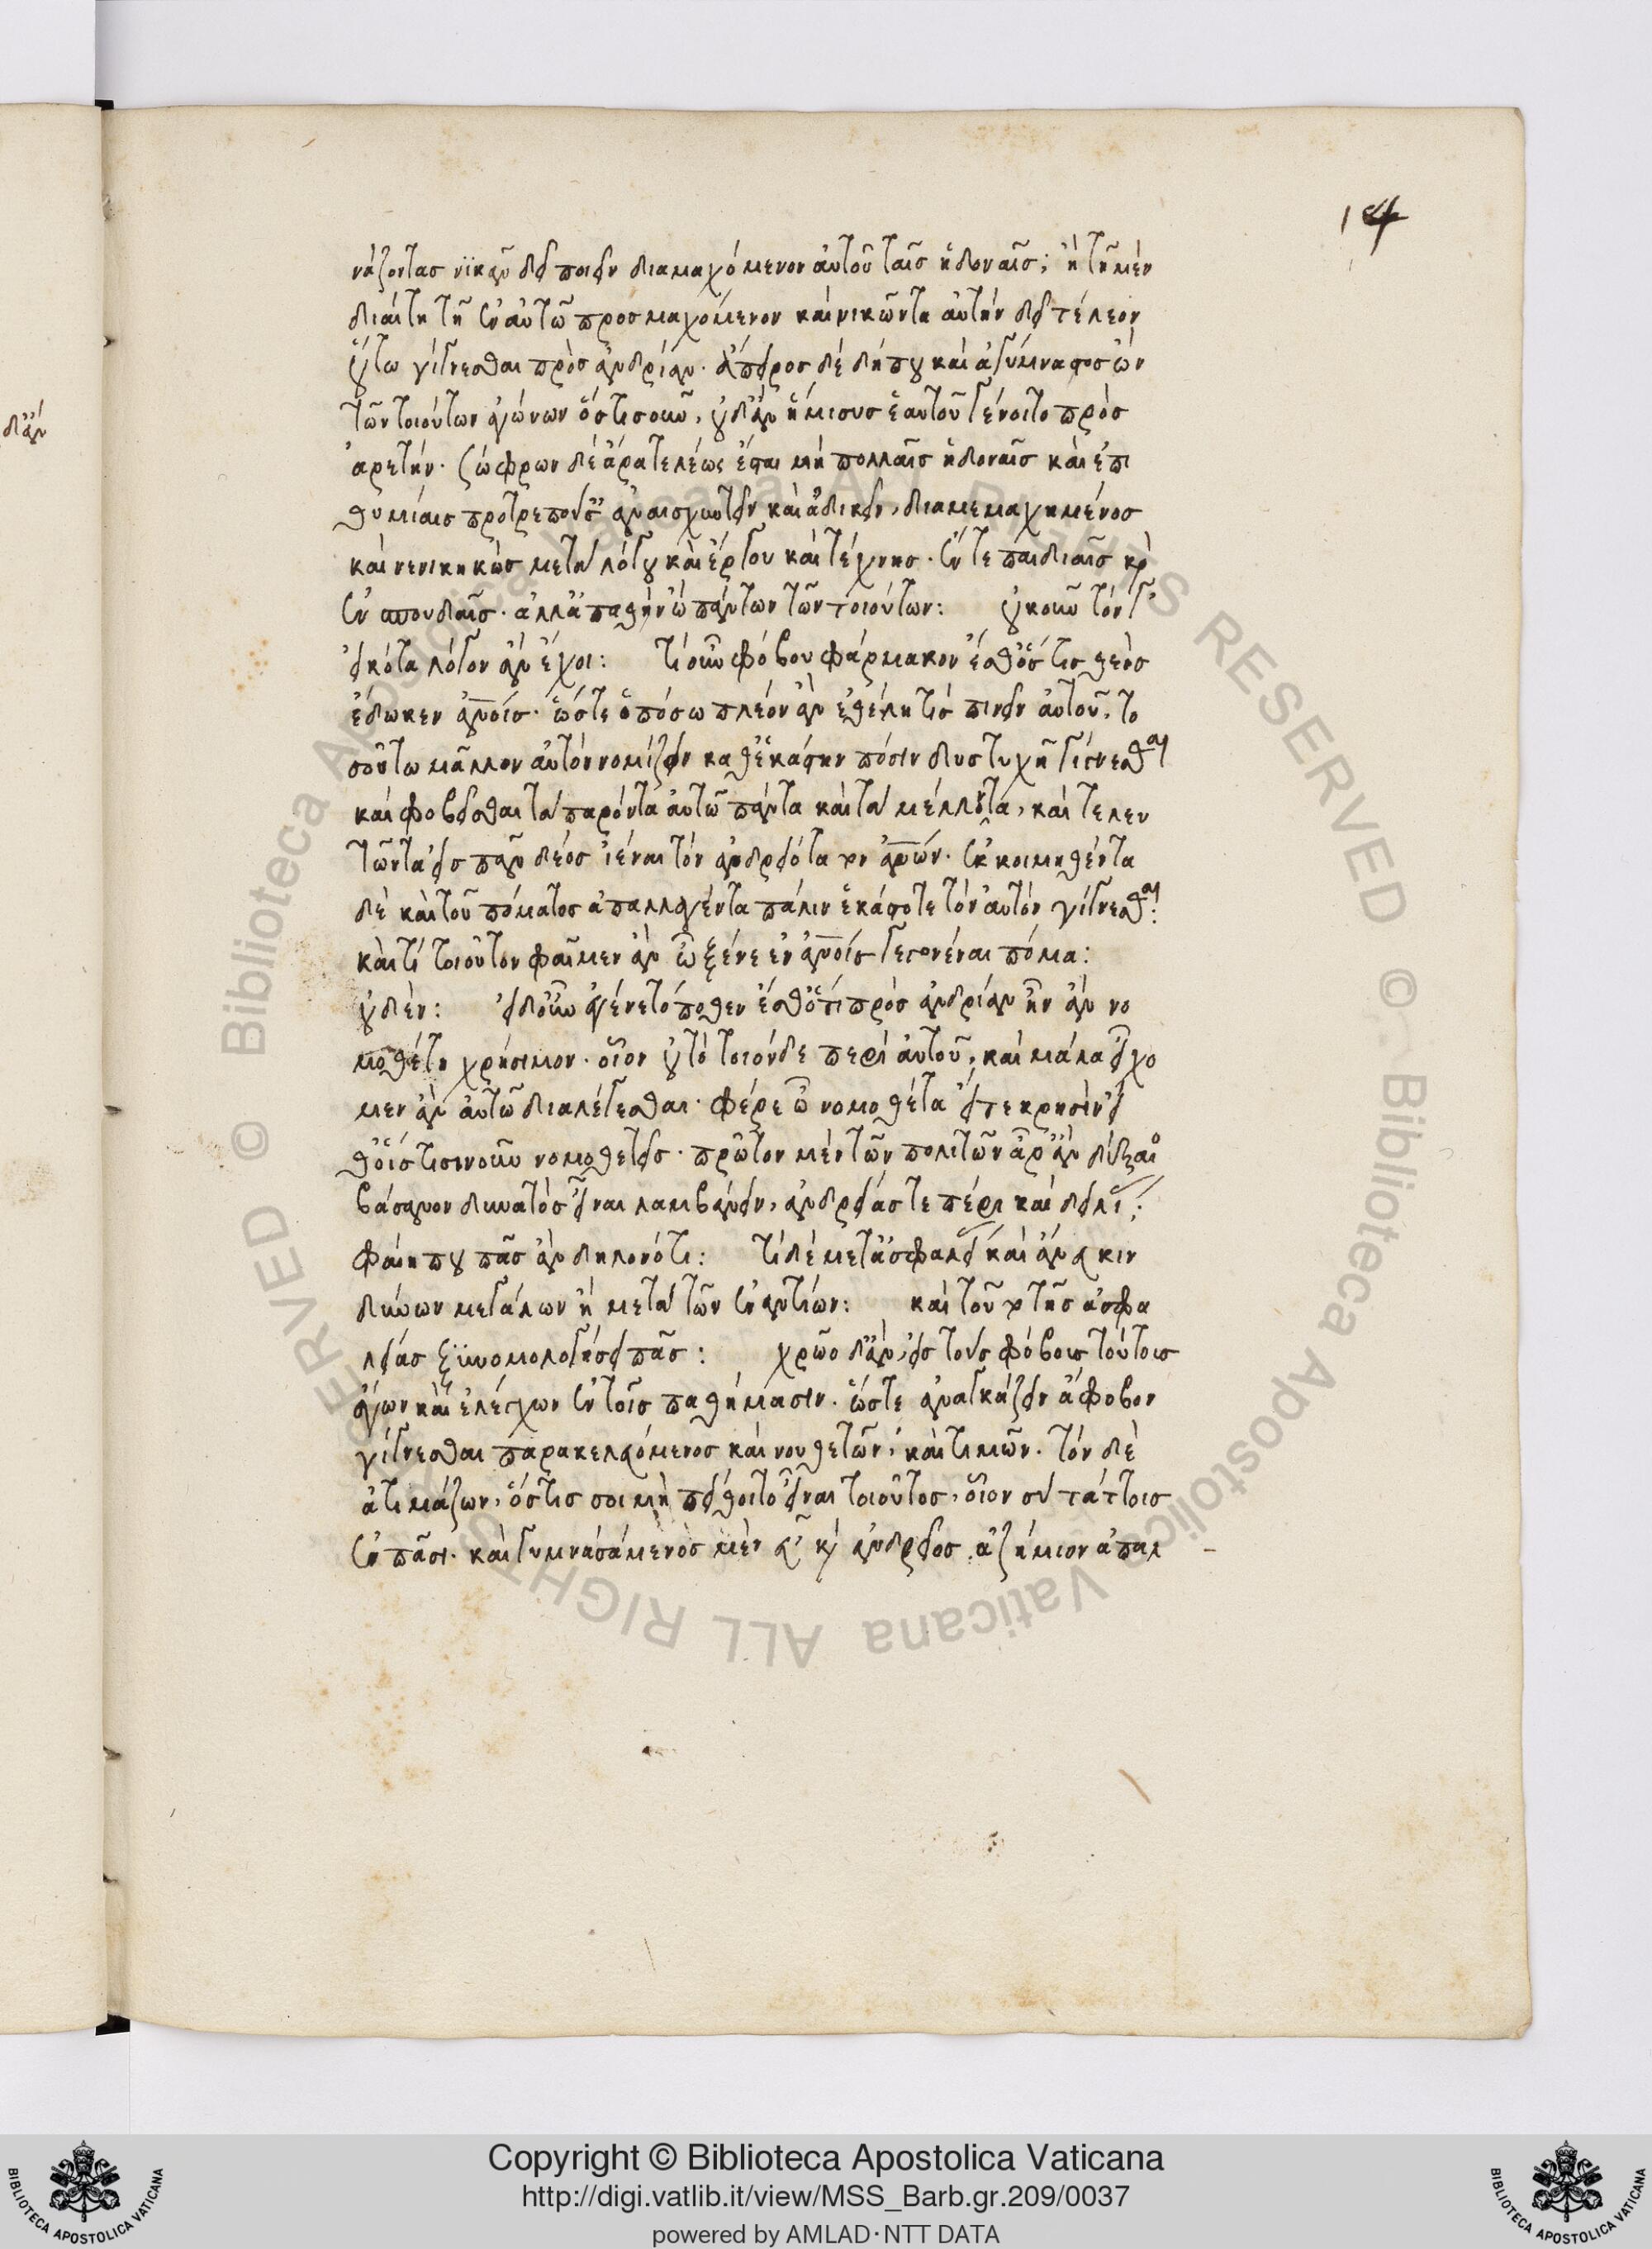 14
νάζοντας νϊκᾶν δεῖ ποιεῖν διαμαχόμενον αὐτοῦ ταῖς ἡδοναῖς; ἢ τῇ μὲν
διαίτη τῆ ἐν αὐτῶ προσμαχόμενον καὶ νικῶντα αὐτὴν δεῖ τέλεον
οὕτω γίγνεσθαι πρὸς ἀνδρίαν. ἄπειρος δὲ δήπου καὶ ἀγύμναστος ὢν
τῶν τοιούτων ἀγώνων ὅστισοῦν, οὐδ' ἂν ἥμισυς ἑαυτοῦ γένοιτο πρὸς
ἀρετήν. σώφρων δὲ ἄρα τελέως ἔσται μὴ πολλαῖς ἡδοναῖς καὶ ἐπι
θυμίαις προτρεπούσαις ἀναισχυντεῖν καὶ ἀδικεῖν, διαμεμαχημένος
καὶ νενικηκὼς μετὰ λόγου καὶ ἔργου καὶ τέχνης. ἔν τε παιδιαῖς καὶ
ἐν σπουδαῖς. ἀλλ' ἀπαθὴς ὢν πάντων τῶν τοιούτων: οὔκουν τόν γ'
εἰκότα λόγον ἂν ἔχοι: τί οὖν φόβου φάρμακον ἔσθ' ὅστις θεὸς
ἔδωκεν ἀνοις. ὥστε ὁπόσω πλέον ἂν ἐθέλη τίς πίνειν αὐτοῦ, το
σούτω μᾶλλον αὐτὸν νομίζειν καθ' ἑκάστην πόσιν δυστυχῆ γίγνεσθαι
καὶ φοβεῖσθαι τὰ παρόντα αὐτῶ πάντα καὶ τὰ μέλλοντα, καὶ τελευ
τῶντα εἰς πᾶν δέος ἰέναι τὸν ἀνδρειότατον ἀνων. ἐκκοιμηθέντα
δὲ καὶ τοῦ πόματος ἀπαλλαγέντα πάλιν ἑκάστοτε τὸν αὐτὸν γίγνεσθαι:
καὶ τί τοιοῦτον φαῖμεν ἂν ὦ ξένε ἐν ἀνοις γεγονέναι πόμα:
οὐδέν: εἰ δ' οὖν ἐγένετό ποθεν ἔσθ' ὅτι πρὸς ἀνδρίαν ἦν ἂν νο
μοθέτη χρήσιμον. οἷον οὖ τὸ τοιόνδε περὶ αὐτοῦ, καὶ μάλα εἴχο
μεν ἂν αὐτῶ διαλέγεσθαι. φέρε ὦ νομοθέτα εἴτε κρησὶν εἴ
θ' οἷστισινοῦν νομοθετεῖς. πρῶτον μὲν τῶν πολιτῶν ἆρ' ἂν δέξαιο
βάσανον δυνατὸς εἶναι λαμβάνειν, ἀνδρείας τε πέρι καὶ δειλίας;
φαίη που πᾶς ἂν δηλονότι: τί δὲ μετ' ἀσφαλείας καὶ ἄνευ κιν
δύνων μεγάλων ἢ μετὰ τῶν ἐναντίων: καὶ τοῦτο τῆς ἀσφα
λείας ξυνομολογήσει πᾶς: χρῶο δ' ἂν, εἰς τοὺς φόβους τούτους
ἄγων καὶ ἐλέγχων ἐν τοῖς παθήμασιν. ὥστε ἀναγκάζειν ἄφοβον
γίγνεσθαι παρακελευόμενος καὶ νουθετῶν, καὶ τιμῶν. τὸν δὲ
ἀτιμάζων, ὅστις σοι μὴ πείθοιτο εἶναι τοιοῦτος, οἷον σὺ τάττοις
ἐν πᾶσι. καὶ γυμνασάμενος μὲν εὖ καὶ ἀνδρείως ἀζήμιον ἀπαλ
δ' ἂν
Copyright © Biblioteca Apostolica Vaticana
http://digi.vatlib.it/view/MSS_Barb.gr.209/0037
powered by AMLAD·NTT DATA